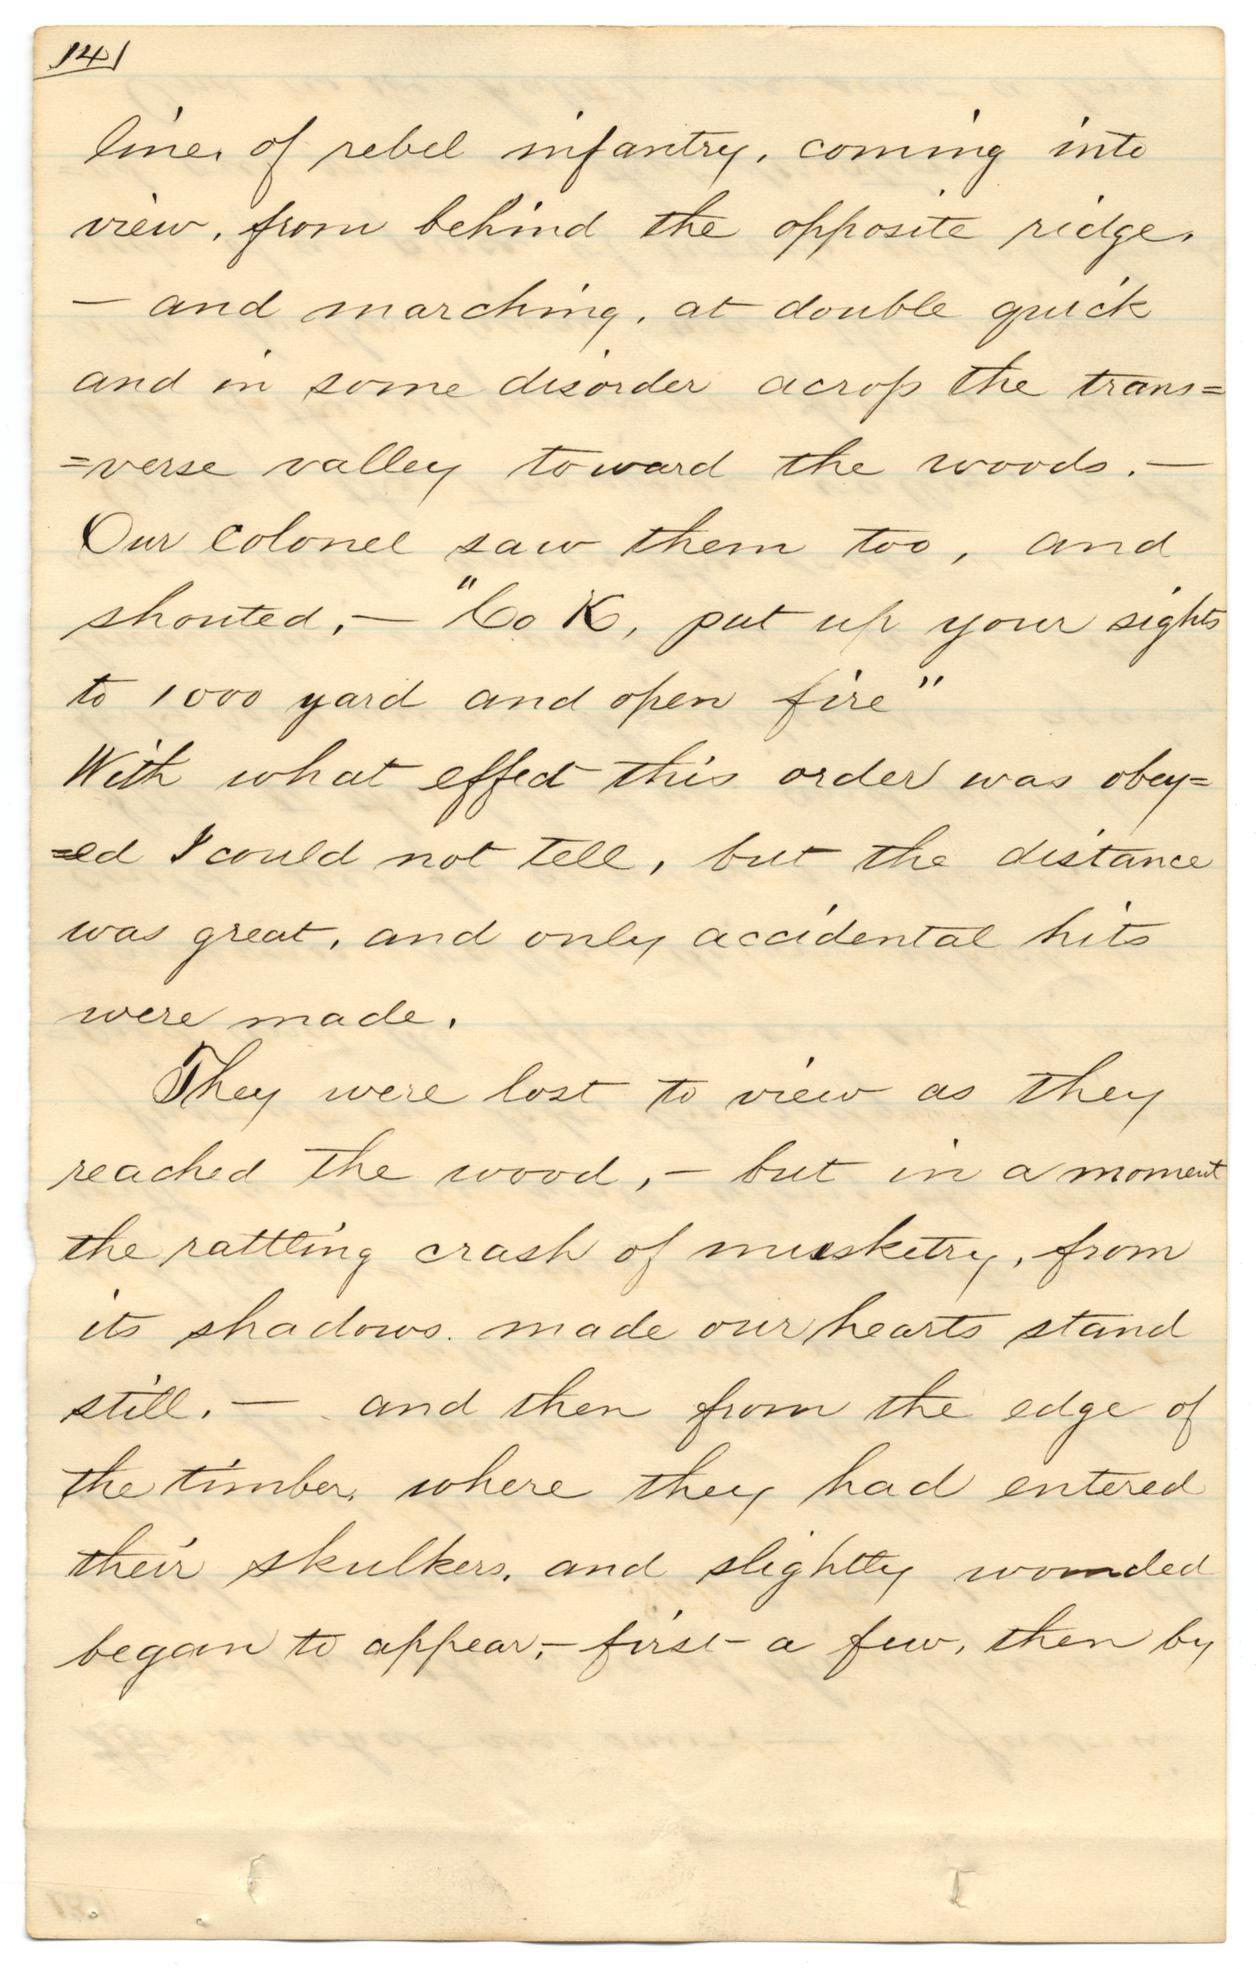 14
line, of rebel infantry, coming into
view, from behind the opposite ridge,
— and marching, at double quick
and in some disorder across the trans=
=verse valley toward the woods. —
Our Colonel saw them too, and
shouted, — "Co K, put up your sights
to 1000 yard and open fire"
With what effect this order was obey=
=ed I could not tell, but the distance
was great, and only accidental hits
were made.
They were lost to view as they
reached the wood, — but in a moment
the rattling crash of musketry, from
its shadows. made our hearts stand
still. — and then from the edge of
the timber, where they had entered
their skulkers, and slightly wounded
began to appear, — first — a few, then by